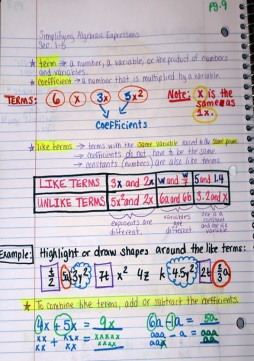 pg.9
Simplifying Algebraic Expressions
Sec. 1-5
term → a number, a variable, or the product of numbers
and variables.
coefficient → a number that is multiplied by a variable.
TERMS: 6 x 3x 5x²
Note: x is the
same as
1x.
coefficients
like terms → terms with the same variable raised to the same power
→ coefficients do not have to be the same
→ constants (numbers) are also like terms
LIKE TERMS 3x and 2x w and w/7 5 and 1.4
UNLIKE TERMS 5x² and 2x 6a and 6b 3.2 and x
exponents are
different
variables
are
different
one is a
constant
and one is a
variable
Example: Highlight or draw shapes around the like terms:
7t x² 4z k 4.5y² 2k
To combine like terms, add or subtract the coefficients.
4x + 5x = 9x 6a - 1a = 5a
xx + xxx = xxxxx aaa - a = aaa